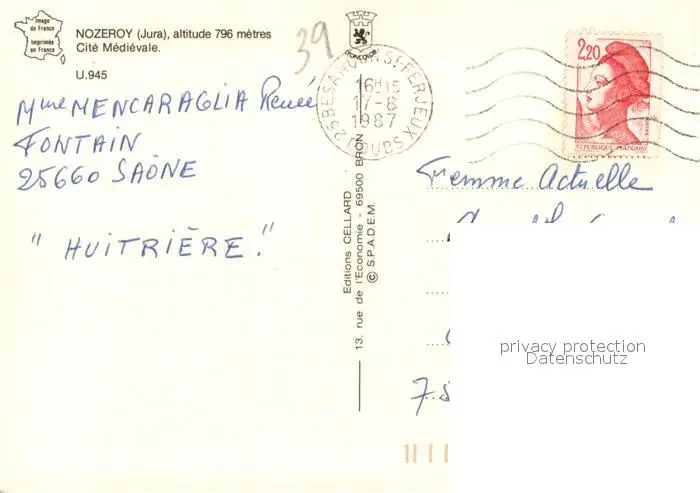 Image
de France
Imprimée
en France
NOZEROY (Jura), altitude 796 mètres
Cité Médiévale.
U.945
39
25 BESANCON ST-FERJEUX
16H15
17-8
1987
DOUBS
2,20
REPUBLIQUE FRANÇAISE
Mme MENCARAGLIA Renée
FONTAIN
25660 SAÔNE
" HUITRIÈRE."
Editions CELLARD
13, rue de l'Economie - 69500 BRON
© S.P.A.D.E.M.
Femme Actuelle
privacy protection
Datenschutz